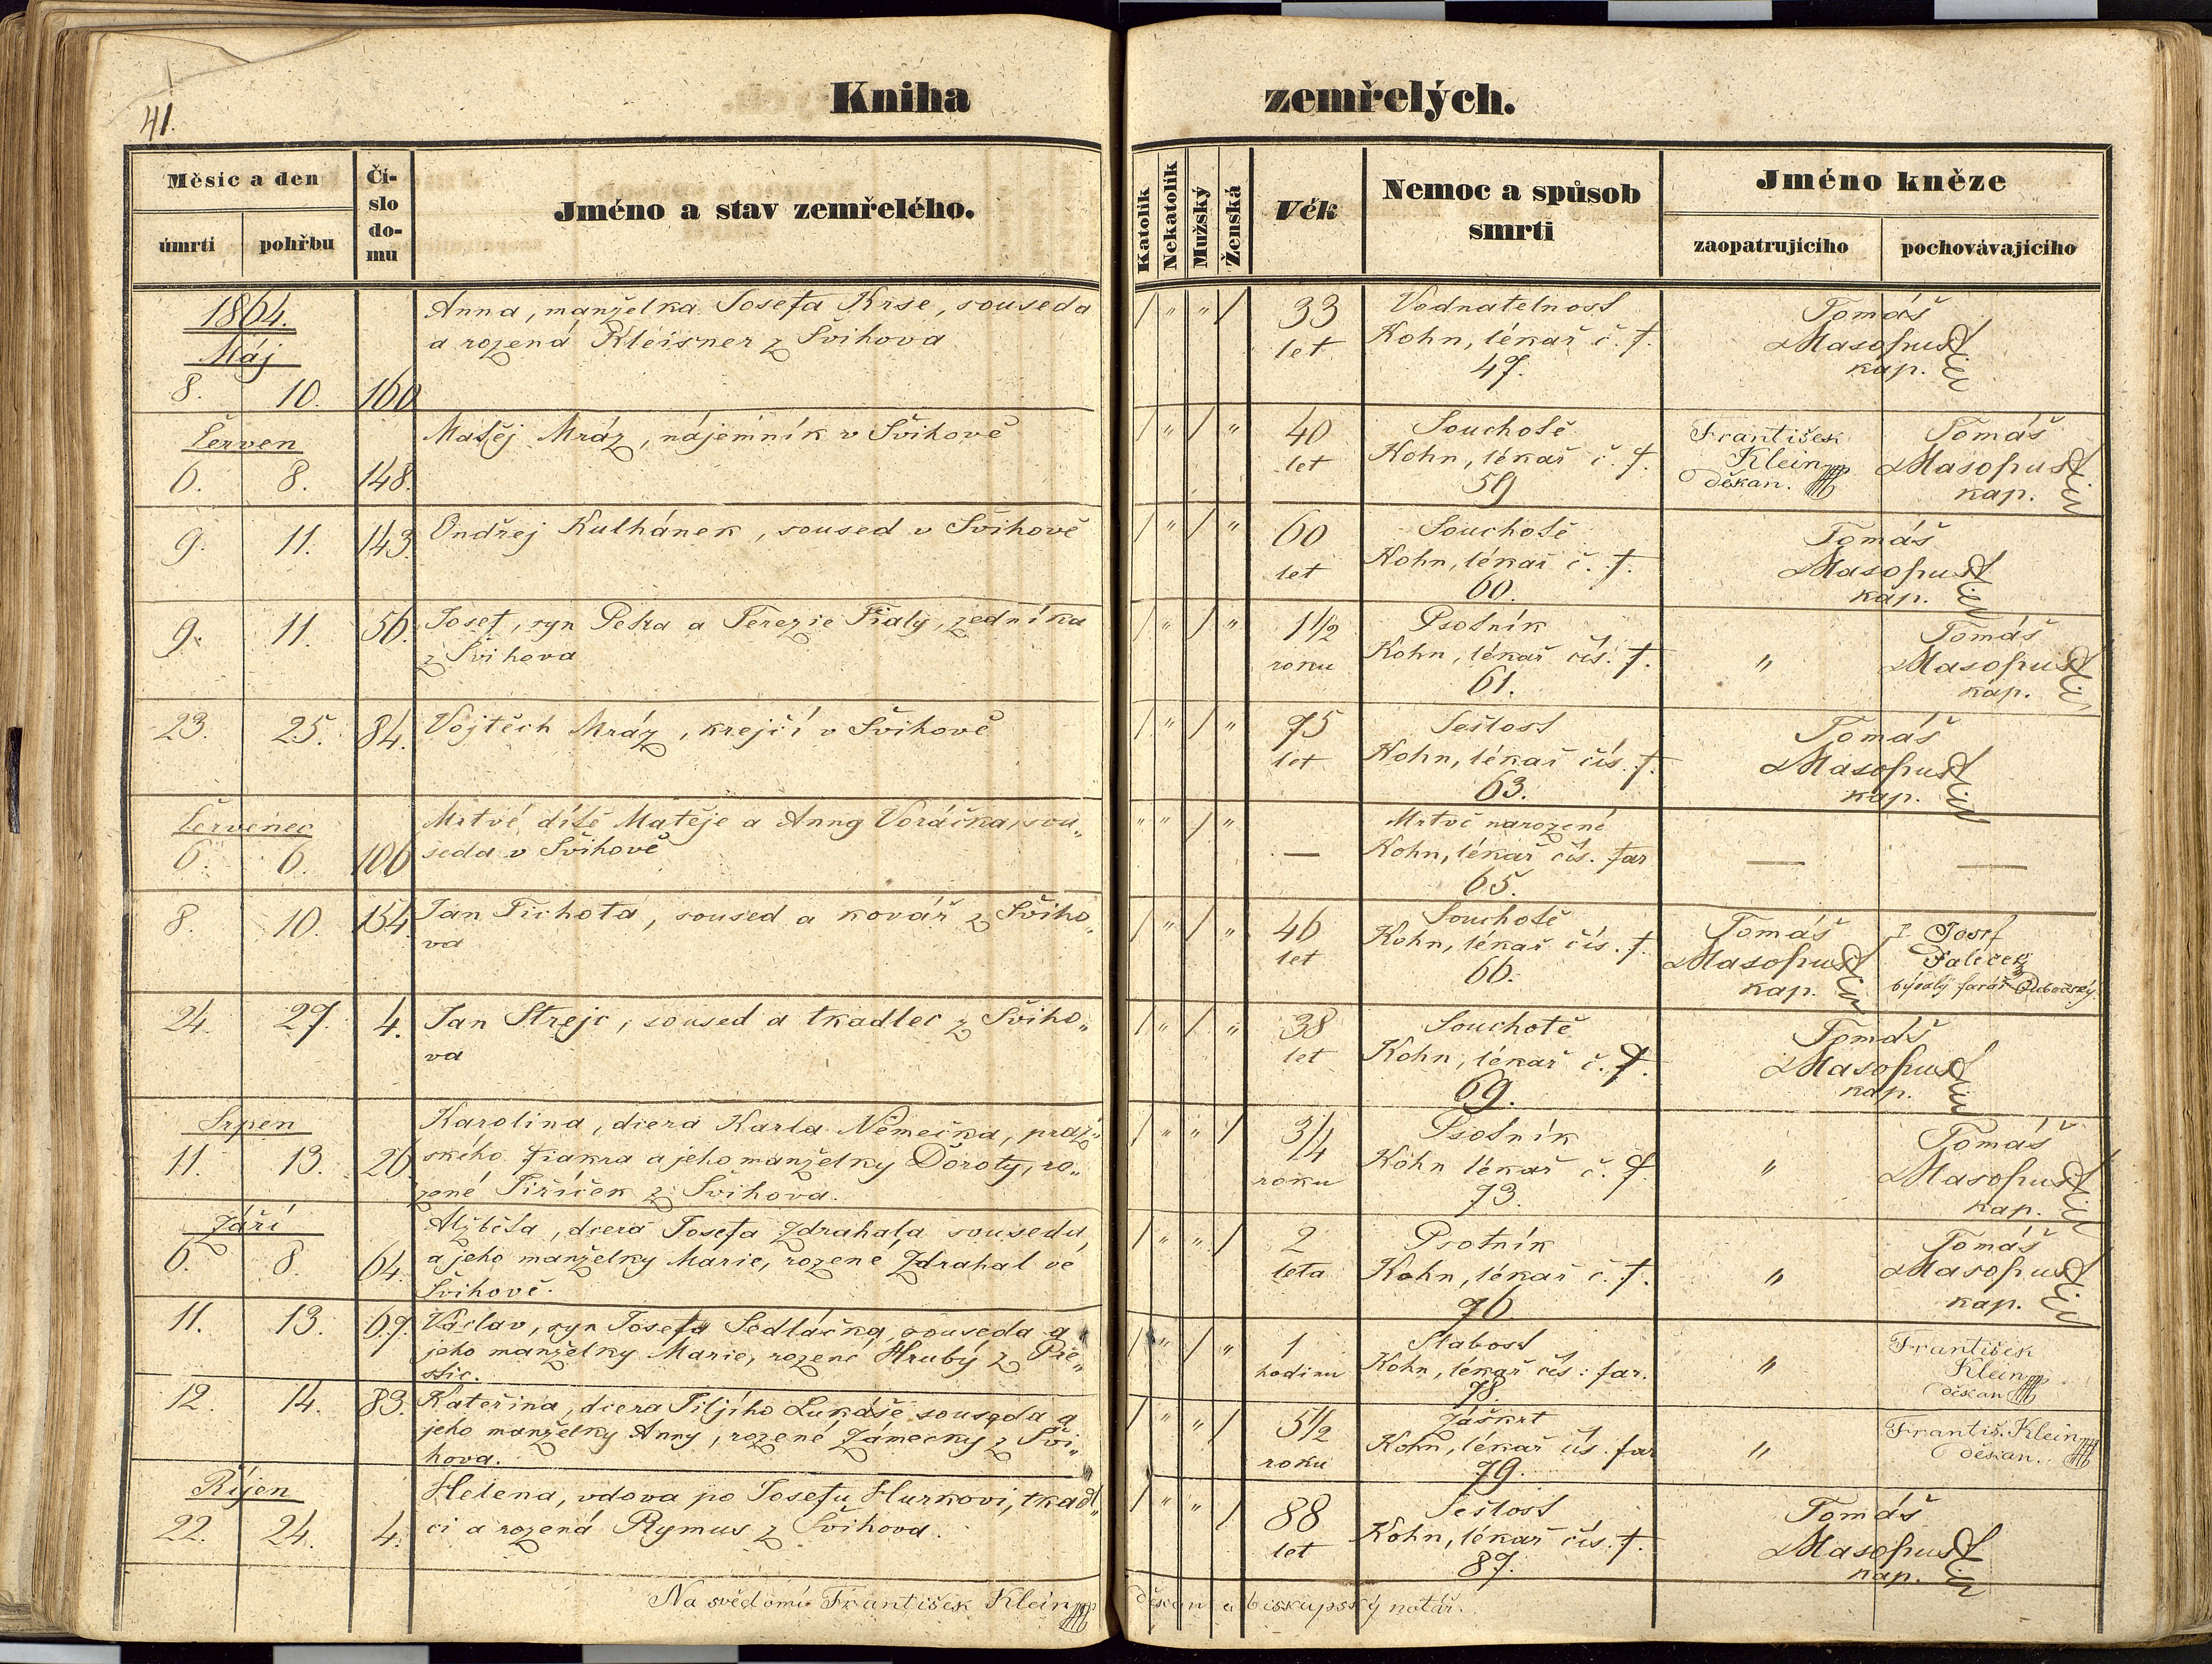 41.
Kniha zemřelých.
Měsíc a den
úmrtí
pohřbu
Čí-
slo
do-
mu
Jméno a stav zemřelého.
Katolík
Nekatolík
Mužský
Ženská
Věk
Nemoc a spůsob
smrti
Jméno kněze
zaopatrujícího
pochovávajícího
1864.
Máj
8. 10. 160
Anna, manželka Josefa Krse, souseda
a rozená Kleisner z Švihova
/ " " /
33
let
Vodnatelnost
Kohn, lékař č. f.
47.
Tomáš
Masopust
kap.
Červen
6. 8. 148.
Matěj Mráz, nájemník v Švihově
/ " / "
40
let
Souchotě
Kohn, lékař č. f.
59
František
Klein
děkan.
Tomáš
Masopust
kap.
9. 11. 143.
Ondřej Kulhánek, soused v Švihově
/ " / "
60
let
Souchotě
Kohn, lékař č. f.
60.
Tomáš
Masopust
kap.
9. 11. 56.
Josef, syn Petra a Terezie Fialy, zedníka
z Švihova
/ " / "
1 1/2
roku
Psotník
Kohn, lékař čís. f.
61.
"
Tomáš
Masopust
kap.
23. 25. 84.
Vojtěch Mráz, krejčí v Švihově
/ " / "
75
let
Sešlost
Kohn, lékař čís. f.
63.
Tomáš
Masopust
kap.
Červenec
6. 6. 106
Mrtvé dítě Matěje a Anny Voráčka, sou„
seda v Švihově
" " / "
—
Mrtvě narozené
Kohn, lékař čís. far
65.
— —
8. 10. 154.
Jan Tichota, soused a kovář z Šviho„
va
/ " / "
46
let
Souchotě
Kohn, lékař čís. f.
66.
Tomáš
Masopust
kap.
Josef
Paleček
bývalý farář
24. 27. 4.
Jan Strejc, soused a tkadlec z Šviho„
va
/ " / "
38
let
Souchotě
Kohn, lékař č. f.
69.
Tomáš
Masopust
kap.
Srpen
11. 13. 26.
Karolina, dcera Karla Němečka, praž„
ského fiakra a jeho manželky Doroty, ro„
zené Jiříček z Švihova.
/ " " /
3/4
roku
Psotník
Kohn lékař č. f.
73.
"
Tomáš
Masopust
kap.
Září
6. 8. 64.
Alžběta, dcera Josefa Zdrahala souseda,
a jeho manželky Marie, rozené Zdrahal ve
Švihově.
/ " " /
2
leta
Psotník
Kohn, lékař č. f.
76
"
Tomáš
Masopust
kap.
11. 13. 69.
Václav, syn Josefa Sedláčka, souseda a
jeho manželky Marie, rozené Hrubý z Pře„
štic.
/ " / "
1
hodinu
Slabost
Kohn, lékař čís: far.
78.
"
František
Klein
děkan
12. 14. 83.
Kateřina, dcera Jiljího Lukáše souseda a
jeho manželky Anny, rozené Zámecky z Švi„
hova.
/ " " /
5 1/2
roku
Záškrt
Kohn, lékař čís. far
79.
"
Františ. Klein
děkan.
Říjen
22. 24. 4.
Helena, vdova po Josefu Hurkovi, tkadl„
ci a rozená Rymus z Švihova.
/ " " /
88
let
Sešlost
Kohn, lékař čís. f.
87.
Tomáš
Masopust
kap.
Na svědomí František Klein děkan a biskupský notář.